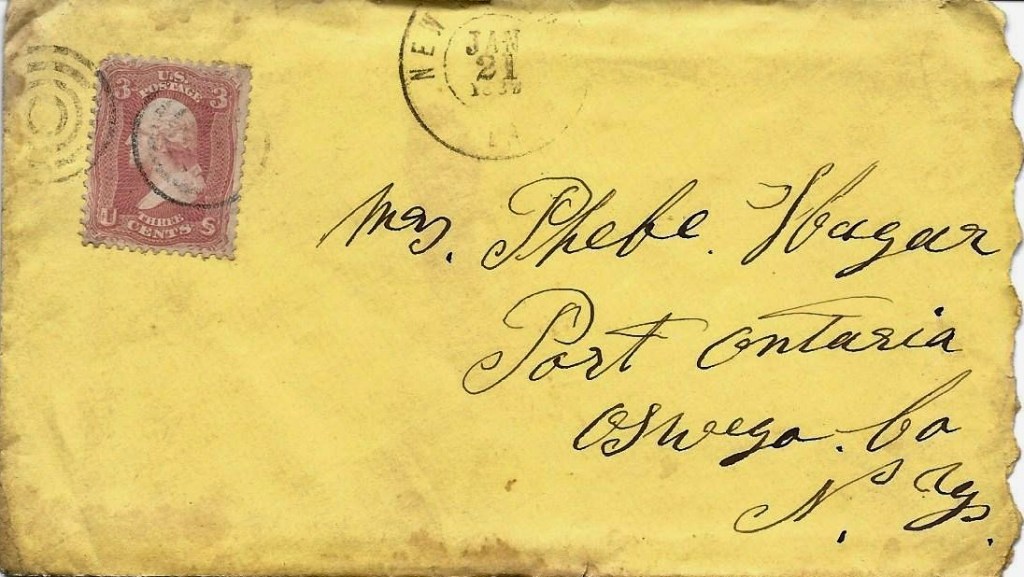 U.S.
POSTAGE
3 3
THREE
U CENTS S
NEW
JAN
21
LA
Mrs. Phebe. Hagar
Port Ontaria
Oswego. Co
N. Y.